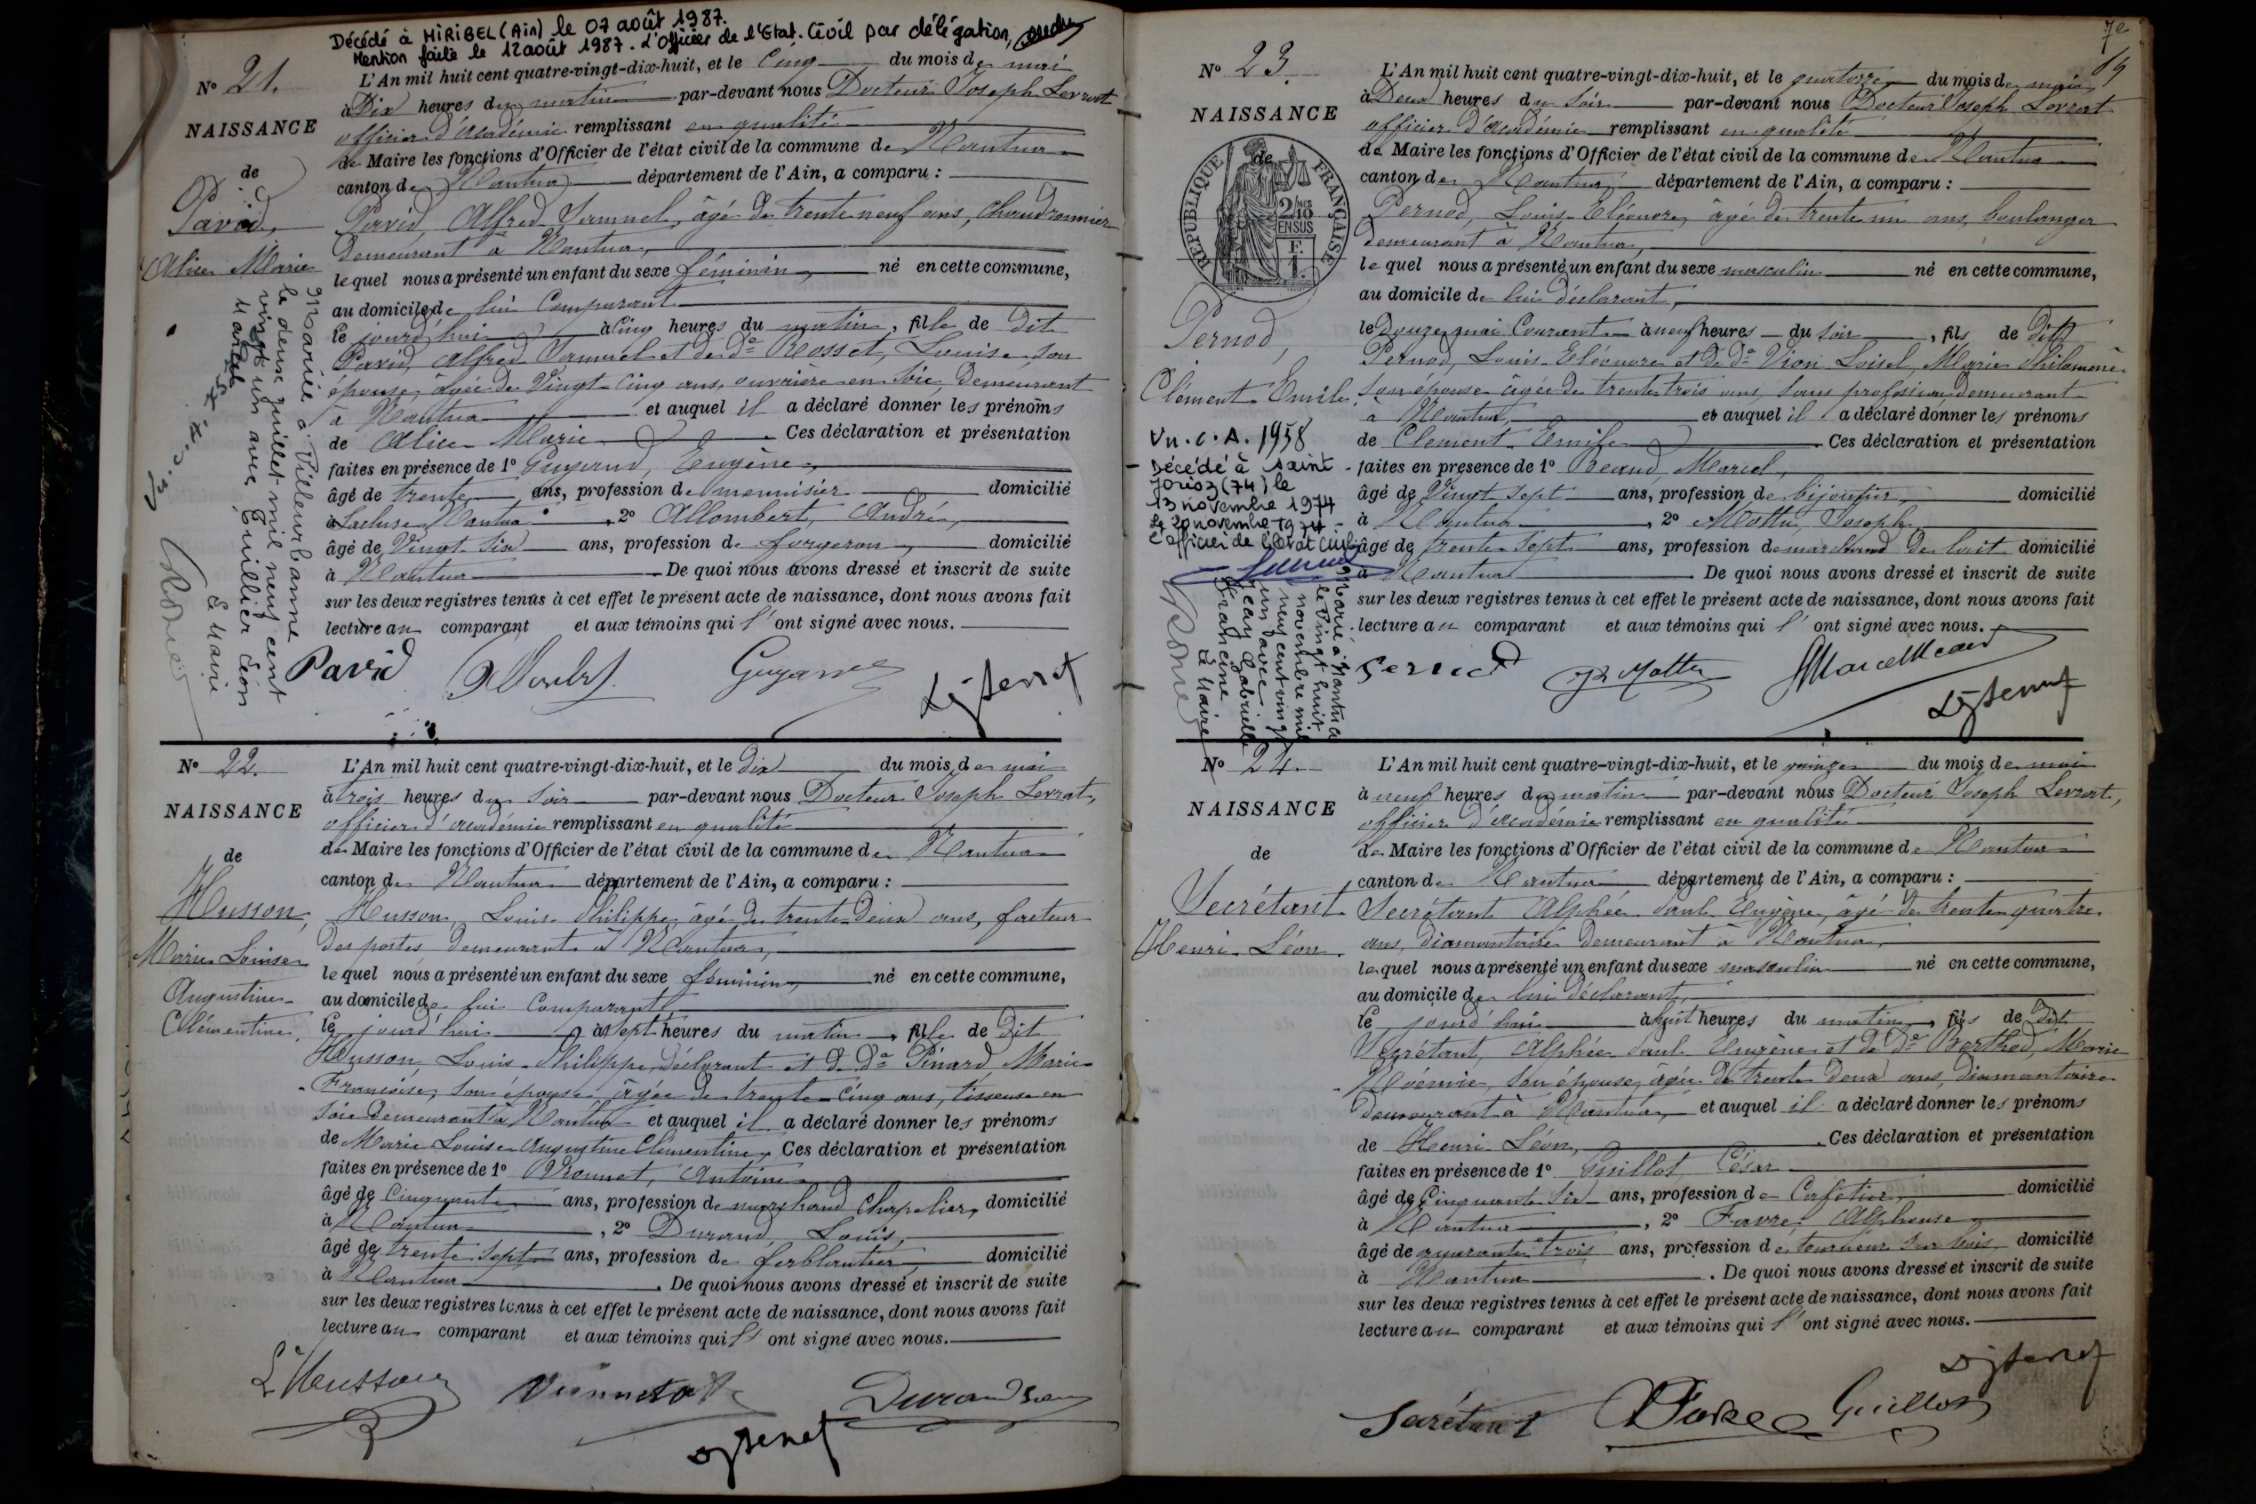 Décédé à MIRIBEL (Ain) le 07 août 1987.
Mention faite le 12 août 1987. L'Officier de l'Etat-Civil par délégation,
N° 21.
NAISSANCE
de
Pavid,
Alice Marie
L'An mil huit cent quatre-vingt-dix-huit, et le Cinq du mois de mai
à Dix heures du matin par-devant nous Docteur Joseph Levrat
officier d'académie remplissant en qualité
de Maire les fonctions d'Officier de l'état civil de la commune de Nantua
canton de Nantua département de l'Ain, a comparu :
Pavid, Alfred Samuel, âgé de trente neuf ans, chaudronnier
Demeurant à Nantua,
lequel nous a présenté un enfant du sexe féminin, né en cette commune,
au domicile de lui Comparant
le jourd'hui à Cinq heures du matin, fille de Dit
Pavid, Alfred Samuel et de De Rosset, Louise, son
épouse, âgée de Vingt-Cinq ans, ouvrière en soie, Demeurant
à Nantua et auquel il a déclaré donner les prénoms
de Alice Marie. Ces déclaration et présentation
faites en présence de 1° Eugène,
âgé de trente ans, profession de menuisier domicilié
à Lacluse Nantua, 2° Allombert, André,
âgé de Vingt six ans, profession de forgeron, domicilié
à Nantua. De quoi nous avons dressé et inscrit de suite
sur les deux registres tenus à cet effet le présent acte de naissance, dont nous avons fait
lecture au comparant et aux témoins qui l'ont signé avec nous.
Mariée à Villeurbanne
le deux juillet mil neuf cent
vingt un avec Tuillier Léon
Le Maire
Pavid
N° 22.
NAISSANCE
de
Husson,
Marie Louise
Augustine
Clémentine.
L'An mil huit cent quatre-vingt-dix-huit, et le dix du mois de mai
à trois heures du soir par-devant nous Docteur Joseph Levrat,
officier d'académie remplissant en qualité
de Maire les fonctions d'Officier de l'état civil de la commune de Nantua
canton de Nantua département de l'Ain, a comparu :
Husson, Louis Philippe, âgé de trente-Deux ans, facteur
des postes demeurant à Nantua,
lequel nous a présenté un enfant du sexe féminin, né en cette commune,
au domicile de lui Comparant
le jourd'hui à sept heures du matin, fille de Dit
Husson, Louis Philippe, déclarant et de De Pinard, Marie
Françoise, son épouse, âgée de trente-cinq ans, tisseuse en
soie demeurant à Nantua et auquel il a déclaré donner les prénoms
de Marie Louise Augustine Clémentine, Ces déclaration et présentation
faites en présence de 1° Antoine
âgé de Cinquante ans, profession de marchand Chapelier, domicilié
à Nantua, 2° Durand, Louis,
âgé de trente sept ans, profession de ferblantier, domicilié
à Nantua. De quoi nous avons dressé et inscrit de suite
sur les deux registres tenus à cet effet le présent acte de naissance, dont nous avons fait
lecture au comparant et aux témoins qui l'ont signé avec nous.
L Husson
Durand
N° 23.
NAISSANCE
de
RÉPUBLIQUE FRANÇAISE
2/10 EN SUS
Pernod,
Clément Emile.
L'An mil huit cent quatre-vingt-dix-huit, et le quatorze du mois de mai
à Deux heures du soir par-devant nous Docteur Joseph Levrat
officier d'académie remplissant en qualité
de Maire les fonctions d'Officier de l'état civil de la commune de Nantua
canton de Nantua département de l'Ain, a comparu :
Pernod, Louis Eléonore, âgé de trente un ans, boulanger
demeurant à Nantua,
lequel nous a présenté un enfant du sexe masculin né en cette commune,
au domicile de lui déclarant,
le Douze mai Courant à neuf heures du soir, fils de Dit
Pernod, Louis Eléonore et de De Vion Loisel, Marie Philomène
son épouse âgée de trente trois ans, sans profession demeurant
à Nantua, et auquel il a déclaré donner les prénoms
de Clément Emile. Ces déclaration et présentation
faites en présence de 1° Marcel,
âgé de Vingt sept ans, profession de bijoutier, domicilié
à Nantua, 2° Mottu, Joseph,
âgé de trente sept ans, profession de marchand de lait domicilié
à Nantua. De quoi nous avons dressé et inscrit de suite
sur les deux registres tenus à cet effet le présent acte de naissance, dont nous avons fait
lecture au comparant et aux témoins qui l'ont signé avec nous.
Vu. C. A. 1958
Décédé à Saint
Jorioz (74) le
13 novembre 1974
Le 20 novembre 1974
L'officier de l'état civil
Marié à Nantua
le vingt huit
novembre mil
neuf cent vingt
un avec
Gabrielle
Francine
Le Maire
Pernod
N° 24.
NAISSANCE
de
Secrétant
Henri Léon.
L'An mil huit cent quatre-vingt-dix-huit, et le quinze du mois de mai
à neuf heures du matin par-devant nous Docteur Joseph Levrat,
officier d'académie remplissant en qualité
de Maire les fonctions d'Officier de l'état civil de la commune de Nantua
canton de Nantua département de l'Ain, a comparu :
Secrétant Alphée Paul Eugène, âgé de trente quatre
ans, diamantaire demeurant à Nantua,
lequel nous a présenté un enfant du sexe masculin né en cette commune,
au domicile de lui déclarant,
le jourd'hui à huit heures du matin, fils de Dit
Secrétant, Alphée Paul Eugène et de De Berthod, Marie
Noémie, son épouse, âgée de trente deux ans, diamantaire
demeurant à Nantua, et auquel il a déclaré donner les prénoms
de Henri Léon,. Ces déclaration et présentation
faites en présence de 1° Guillot, César
âgé de Cinquante six ans, profession de Cafetier, domicilié
à Nantua, 2° Favre, Alphonse
âgé de quarante trois ans, profession de tourneur sur bois domicilié
à Nantua. De quoi nous avons dressé et inscrit de suite
sur les deux registres tenus à cet effet le présent acte de naissance, dont nous avons fait
lecture au comparant et aux témoins qui l'ont signé avec nous.
Secrétant Favre Guillot